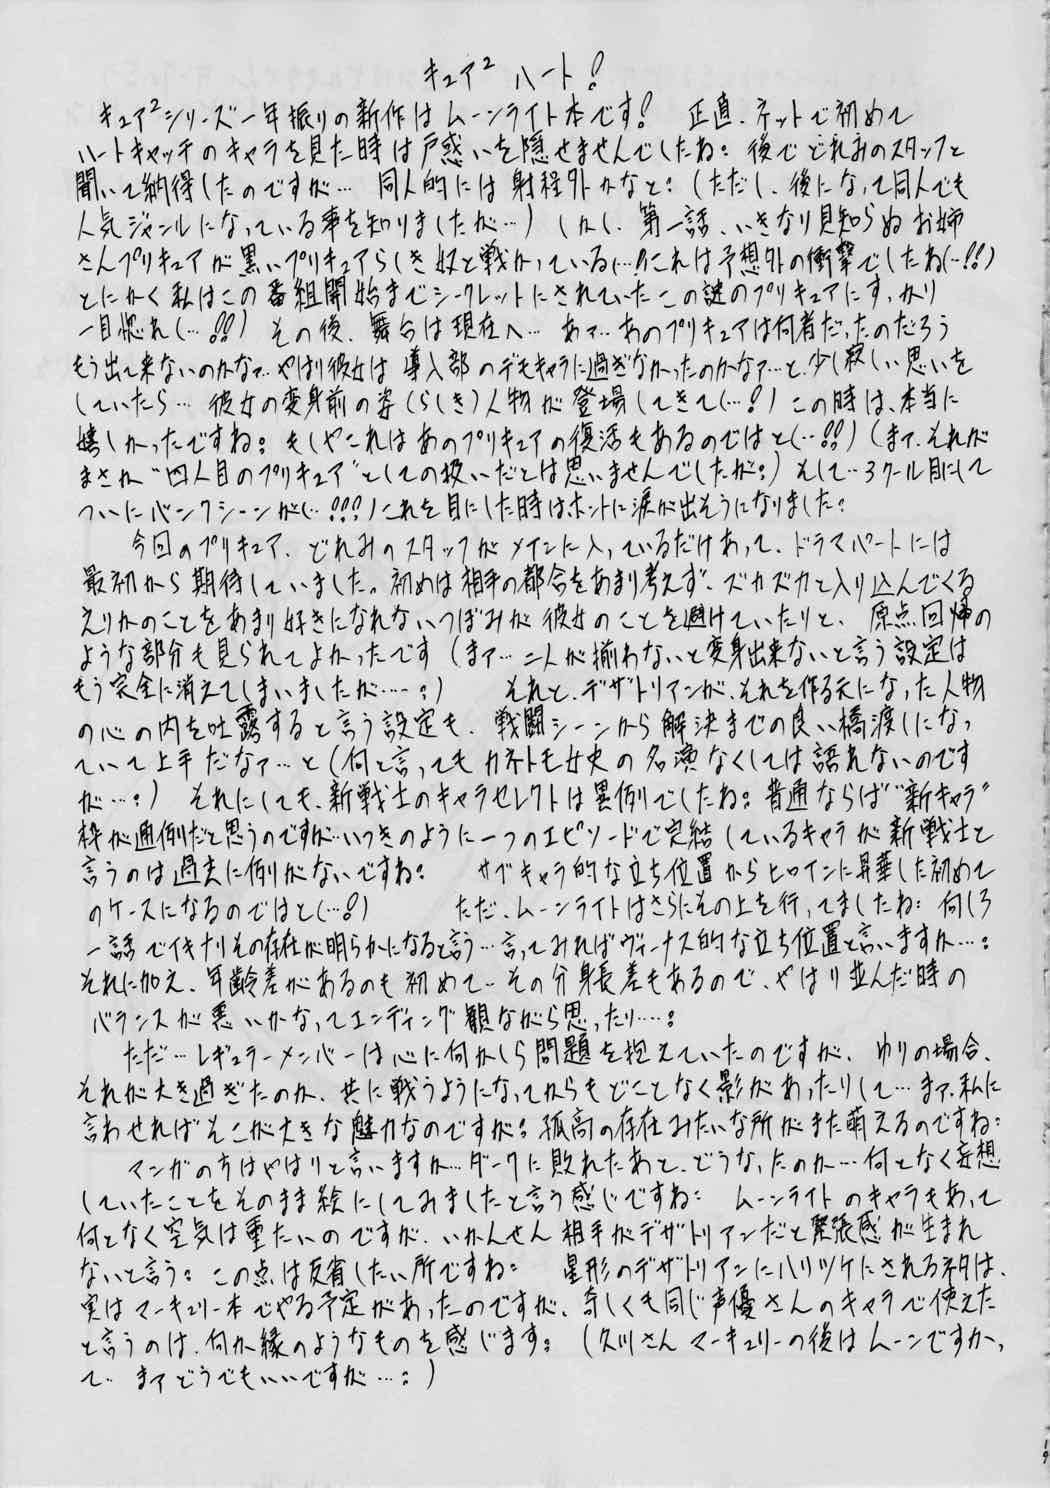 キュア² ハート！
キュア²シリーズ一年振りの新作はムーンライト本です！ 正直、ネットで初めて
ハートキャッチのキャラを見た時は戸惑いを隠せませんでしたね： 後でどれみのスタッフと
聞いて納得したのですが… 同人的には射程外かなと：（ただし、後になって同人でも
人気ジャンルになっている事を知りましたが…） しかし、第一話、いきなり見知らぬお姉
さんプリキュアが黒いプリキュアらしき奴と戦かっている(…!!これは予想外の衝撃でしたね(…!!)
とにかく私はこの番組開始までシークレットにされていたこの謎のプリキュアにすっかり
一目惚れ(…!!) その後、舞台は現在へ… あァ…あのプリキュアは何者だったのだろう
もう出て来ないのかなァ…やはり彼女は導入部のデモキャラに過ぎなかったのかなァ…と、少し寂しい思いを
していたら… 彼女の変身前の姿(らしき)人物が登場してきて(…!) この時は、本当に
嬉しかったですね： もしやこれはあのプリキュアの復活もあるのではと(…!!)（まァ、それが
まさか“四人目のプリキュア”としての扱いだとは思いませんでしたが：）そして…3クール目にして
ついにバンクシーンが(…!!!)これを目にした時はホントに涙が出そうになりました：
今回のプリキュア、どれみのスタッフがメインに入っているだけあって、ドラマパートには
最初から期待していました。初めは相手の都合をあまり考えず、ズカズカと入り込んでくる
えりかのことをあまり好きになれないつぼみが彼女のことを避けていたりと、原点回帰の
ような部分も見られてよかったです（まァ…二人が揃わないと変身出来ないと言う設定は
もう完全に消えてしまいましたが……：） それと、デザトリアンが、それを作る元になった人物
の心の内を吐露すると言う設定も、戦闘シーンから解決までの良い橋渡しになっ
ていて上手だなァ…と（何と言ってもカネトモ女史の名演なくしては語れないのです
が…：） それにしても、新戦士のキャラセレクトは異例でしたね： 普通ならば“新キャラ”
枠が通例だと思うのですが…いつきのように一つのエピソードで完結しているキャラが新戦士と
言うのは過去に例がないですね： サブキャラ的な立ち位置からヒロインに昇華した初めて
のケースになるのではと(…!) ただ、ムーンライトはさらにその上を行ってましたね： 何しろ
一話でイキナリその存在が明らかになると言う…言ってみればヴィーナス的な立ち位置と言いますか…：
それに加え、年齢差があるのも初めて…その分身長差もあるので、やはり並んだ時の
バランスが悪いかなってエンディング観ながら思ったり……：
ただ…レギュラーメンバーは心に何かしら問題を抱えていたのですが、ゆりの場合、
それが大き過ぎたのか、共に戦うようになってからもどことなく影があったりして…まァ、私に
言わせればそこが大きな魅力なのですが： 孤高の存在みたいな所がまた萌えるのですね：
マンガの方はやはりと言いますか…ダークに敗れたあと、どうなったのか…何となく妄想
していたことをそのまま絵にしてみましたと言う感じですね： ムーンライトのキャラもあって
何となく空気は重たいのですが、いかんせん相手がデザトリアンだと緊張感が生まれ
ないと言う： この点は反省したい所ですね： 星形のデザトリアンにハリツケにされるネタは、
実はマーキュリー本でやる予定があったのですが、奇しくも同じ声優さんのキャラで使えた
と言うのは、何か縁のようなものを感じます： （久川さんマーキュリーの後はムーンですかっ
て… まァどうでもいいですが…：）
19